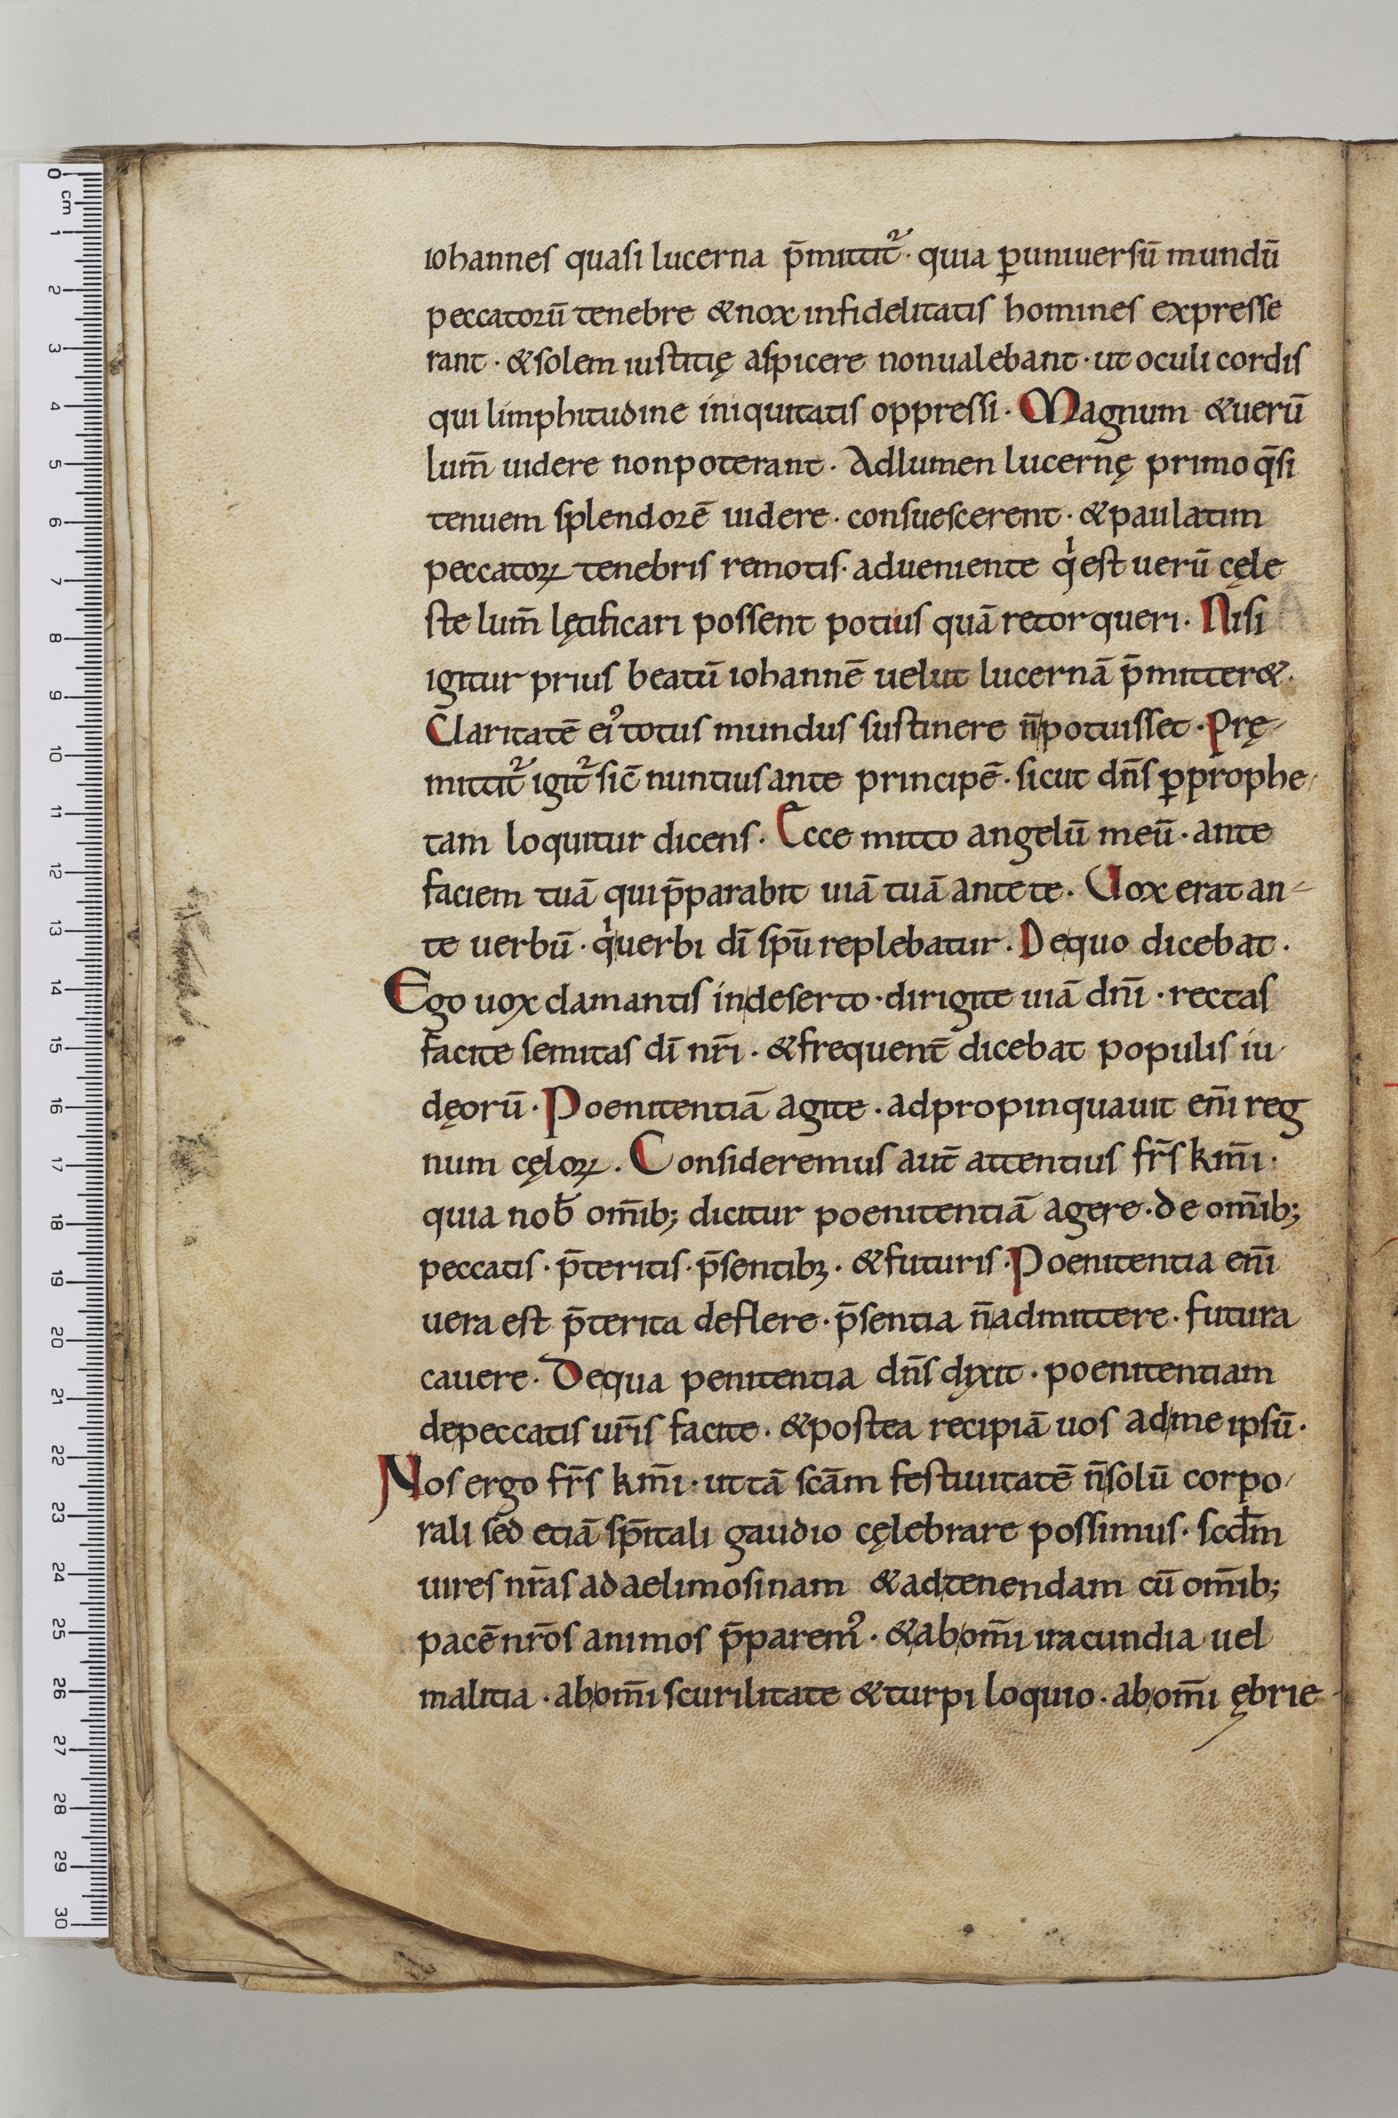 iohannes quasi lucerna p̄mittit᷑· quia ꝑ uniuersū mundū
peccatorū tenebre & nox infidelitatis homines expresse
rant · & solem iustitię aspicere non ualebant · ut oculi cordis
qui limphitudine iniquitatis oppressi · Magnum & uerū
lum̄ uidere non poterant · Ad lumen lucernę primo q̄si
tenuem splendorē uidere · consuescerent · & paulatim
peccatoꝝ tenebris remotis· adueniente qͥ est uerū cęle
ste lum̄ lętificari possent potius quā retorqueri · Nisi
igitur prius beatū iohannē uelut lucernā p̄mitter&·
Claritatē ei᾽ totus mundus sustinere n̄ potuisset · Prę-
mittit᷑ igit᷑ sic̄ nuntius ante principē · sicut dn̄s ꝑ prophe-
tam loquitur dicens · Ecce mitto angelū meū · ante
faciem tuā qui p̄parabit uiā tuā ante te · Uox erat an-
te uerbū · qͥ uerbi dī sp̄u replebatur · De quo dicebat ·
Ego uox clamantis in deserto · dirigite uiā dn̄i · rectas
facite semitas dī nr̄i · & frequent̄ dicebat populis iu-
dęorū · Poenitentiā agite · adpropinquauit en̄i reg
num cęloꝝ · Consideremus aut̄ attentius fr̄s km̄i ·
quia nob̄ om̄ib; dicitur poenitentiā agere · de om̄ib;
peccatis · p̄teritis · p̄sentibꝫ · & futuris · Poenitentia en̄i
uera est p̄terita deflere · p̄sentia n̄ admittere · futura
cauere · De qua penitentia dn̄s dyxit · poenitentiam
de peccatis ur̄is facite · & postea recipiā uos ad me ipsū ·
Nos ergo fr̄s km̄i · ut tā scām festiuitatē n̄ solū corpo-
rali sed etiā sp̄itali gaudio cęlebrare possimus · scd̄m
uires nr̄as ad aelimosinam & ad tenendam cū om̄ib;
pacē nr̄os animos p̄parem᾽ · & ab om̄i iracundia uel
malitia · ab om̄i scurilitate & turpi loquio · ab om̄i ębrie-